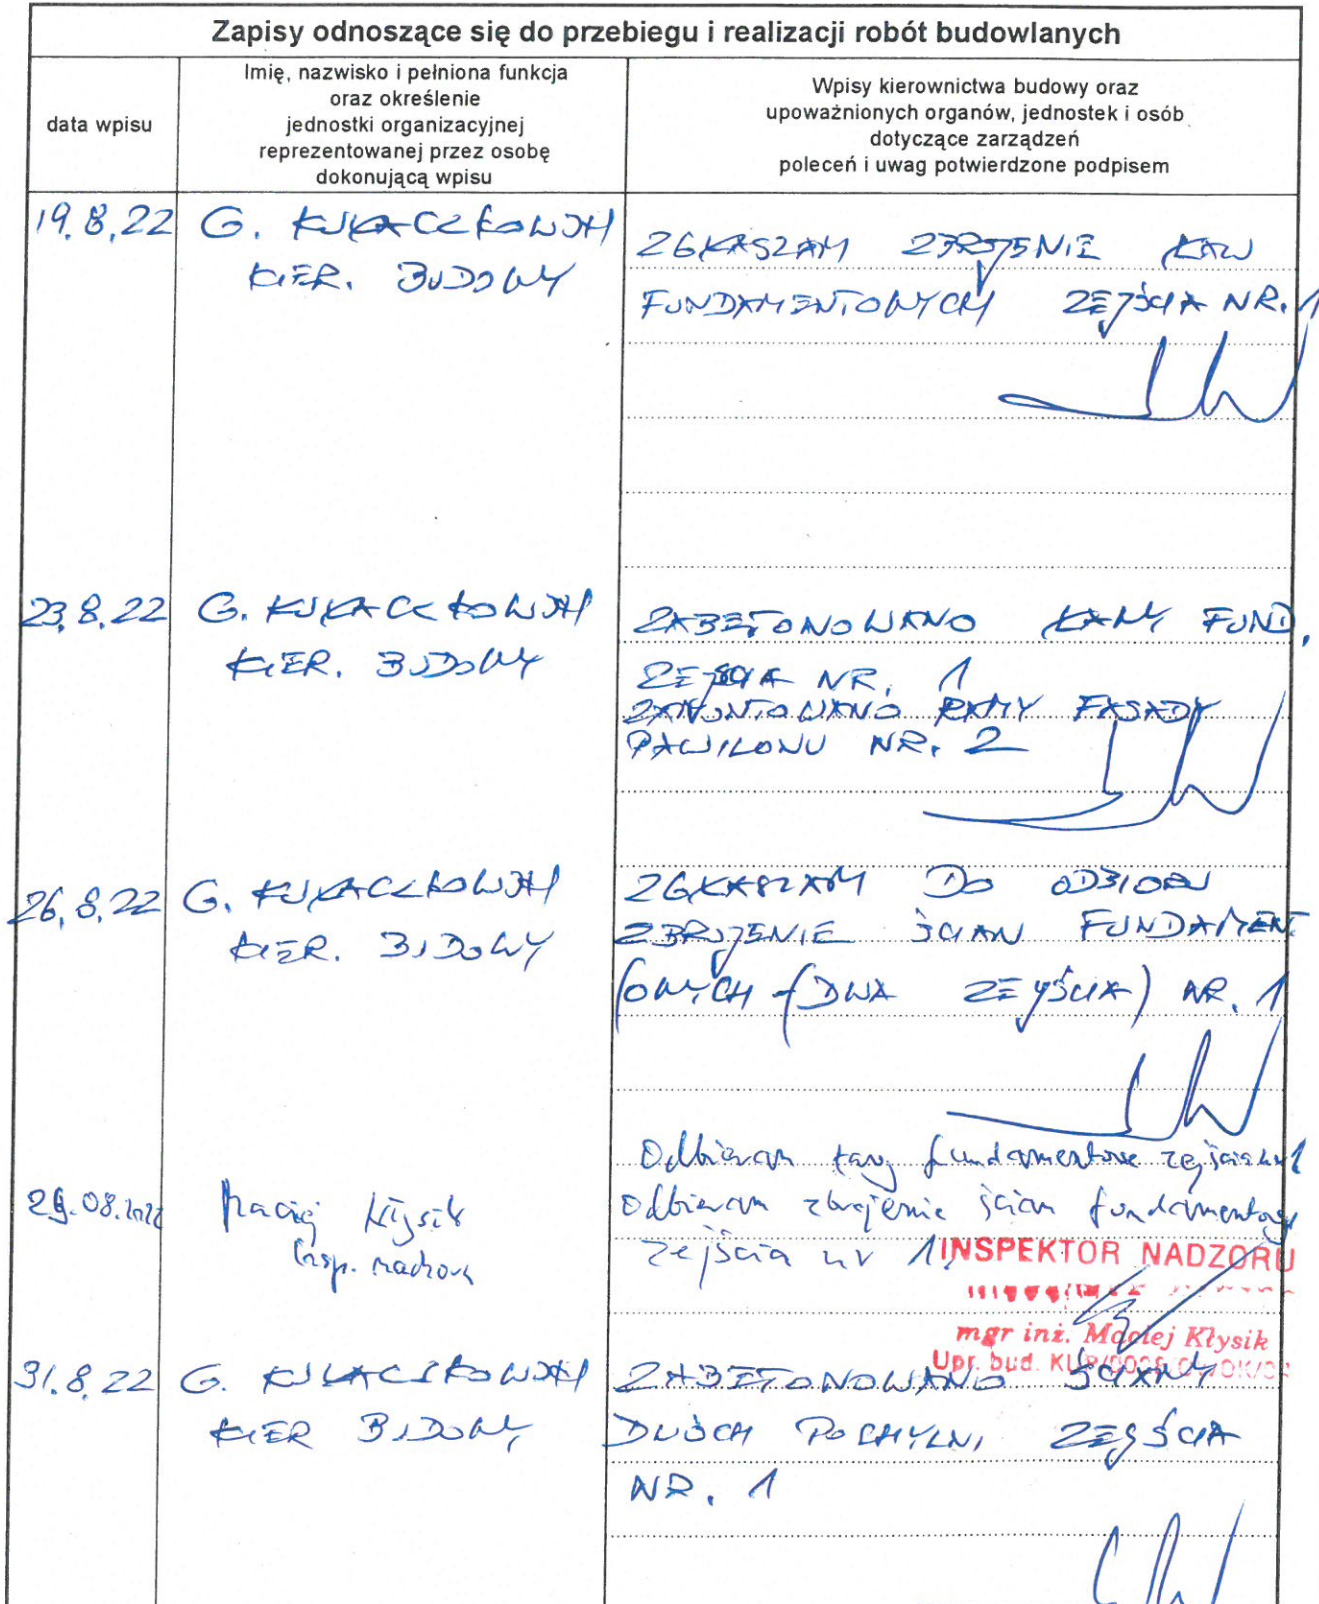 Zapisy odnoszące się do przebiegu i realizacji robót budowlanych
data wpisu
Imię, nazwisko i pełniona funkcja
oraz określenie
jednostki organizacyjnej
reprezentowanej przez osobę
dokonującą wpisu
Wpisy kierownictwa budowy oraz
upoważnionych organów, jednostek i osób
dotyczące zarządzeń
poleceń i uwag potwierdzone podpisem
19.8.22 G.
KIER. BUDOWY
ZGŁASZAM ZBROJENIE ŁAW
FUNDAMENTOWYCH ZEJŚCIA NR. 1
23.8.22 G.
KIER. BUDOWY
ZABETONOWANO ŁAWY FUND.
ZEJŚCIA NR. 1
ZAMONTOWANO RAMY FASADY
PAWILONU NR. 2
26.8.22 G.
KIER. BUDOWY
ZGŁASZAM DO ODBIORU
ZBROJENIE ŚCIAN FUNDAMENT
OWYCH (DWA ZEJŚCIA) NR. 1
08.2022 Maciej Kłysik
Insp. nadzoru
Odbieram ławy fundamentowe zejścia nr 1
Odbieram zbrojenie ścian fundamentowych
zejścia nr 1.
INSPEKTOR NADZORU
mgr inż. Maciej Kłysik
Upr. bud.
31.8.22 G.
KIER BUDOWY
ZABETONOWANO ŚCIANY
DWÓCH POCHYLNI ZEJŚCIA
NR. 1